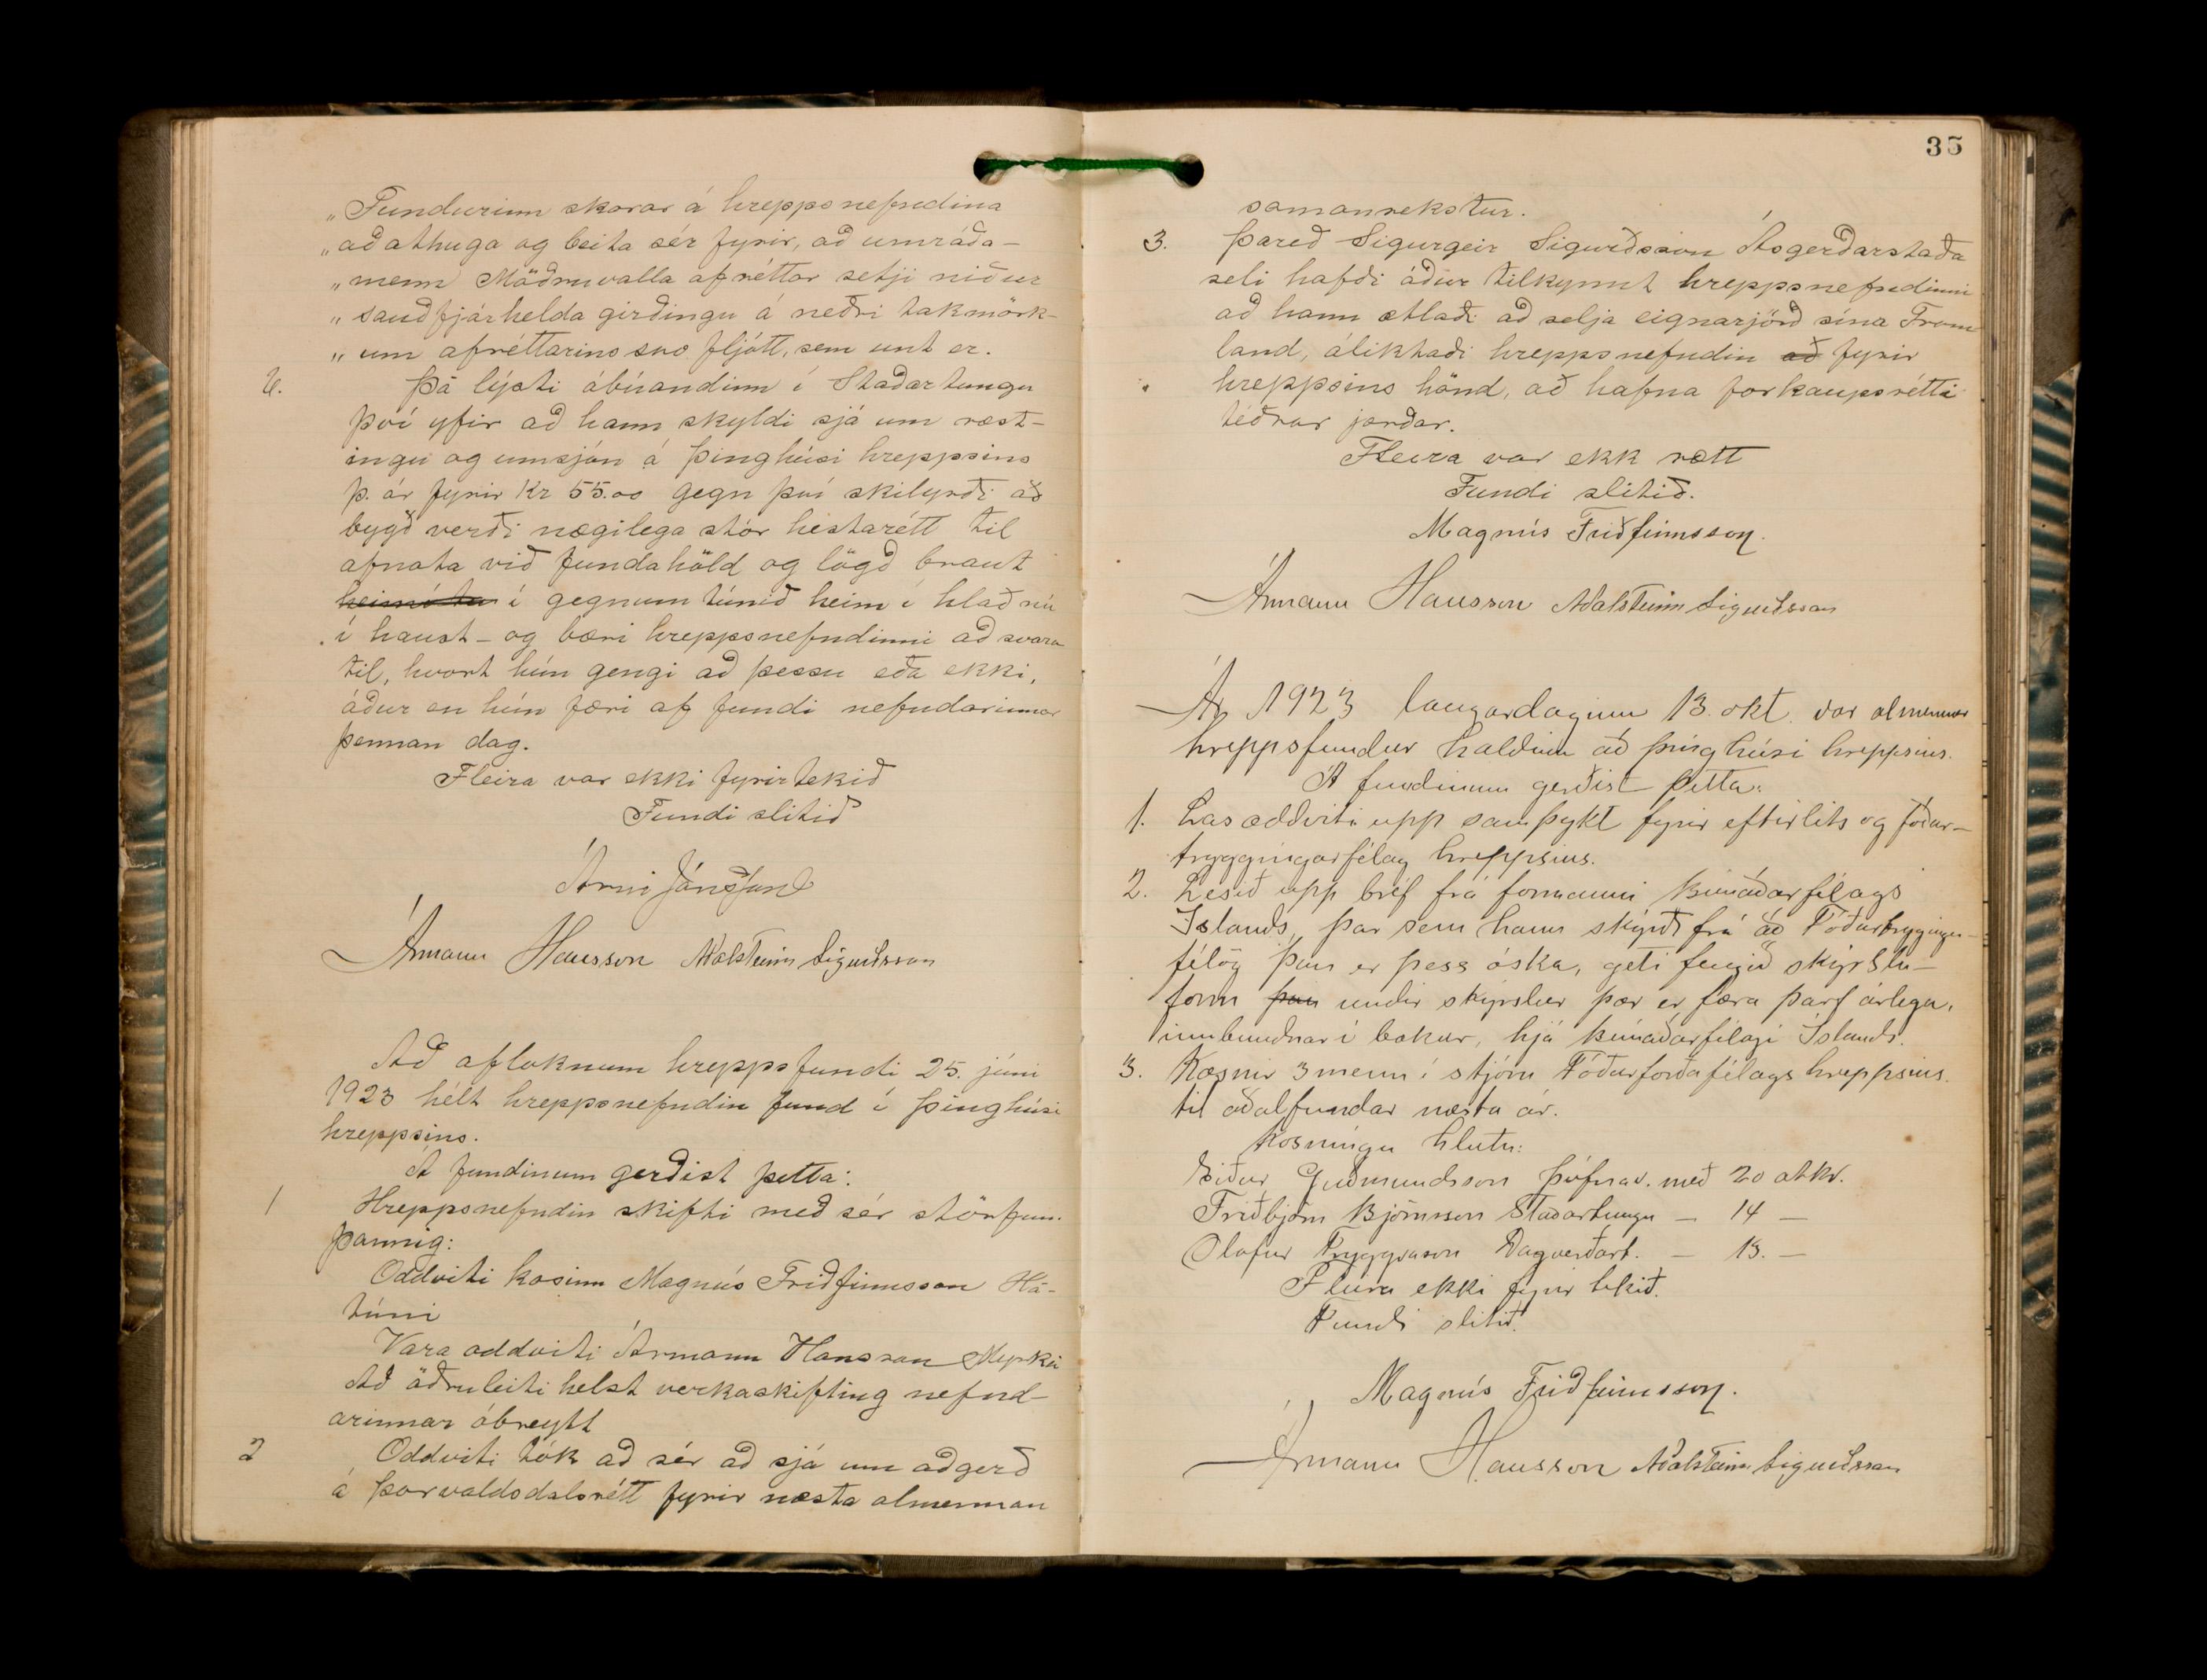 „Fundurinn skorar á hreppsnefndina
„að athuga og beita sér fyrir, að umráða-
„menn Möðruvalla afréttar setji niður
„sauðfjárhelda girðingu á neðri takmörk-
„um afréttarins svo fljótt, sem unt er.
6. Þá lýsti ábúandinn í Staðartungu
því yfir að hann skyldi sjá um ræst-
ingu og umsjón á þinghúsi hreppsins
þ. ár fyrir Kr 55.00 gegn því skilyrði að
bygð verði nægilega stór hestarétt til
afnota við fundahöld og lögð braut
í gegnum túnið heim í hlað nú
í haust - og bæri hreppsnefndinni að svara
til, hvort hún gengi að þessu eða ekki,
áður en hún færi af fundi nefndarinnar
þennan dag.
Fleira var ekki fyrirtekið
Fundi slitið
Árni Jónsson
Ármann Hansson Aðalsteinn Sigurðsson
Að afloknum hreppsfundi 25. júní
1923 hélt hreppsnefndin fund í þinghúsi
hreppsins.
Á fundinum gerðist þetta:
1 Hreppsnefndin skifti með sér störfum.
þannig:
Oddviti kosinn Magnús Friðfinnsson Há-
túni
Vara oddviti Ármann Hansson Myrká
Að öðruleiti helst verkaskifting nefnd-
arinnar óbreytt
2 Oddviti tók að sér að sjá um aðgerð
á Þorvaldsdalsrétt fyrir næsta almennan
35
samanrekstur.
3. Þareð Sigurgeir Sigurðsson Ásgerðarstaða
seli hafði áður tilkynnt hreppsnefndinni
að hann ætlaði að selja eignarjörð sína Fram
land, áliktaði hreppsnefndin að fyrir
hreppsins hönd, að hafna forkaupsrétti
téðrar jarðar.
Fleira var ekk rætt
Fundi slitið.
Magnús Friðfinnsson.
Ármann Hansson Aðalsteinn Sigurðsson
Ár 1923 laugardaginn 13. okt. var almennur
hreppsfundur haldinn að þinghúsi hreppsins.
Á fundinum gerðist þetta:
1. Las oddviti upp samþykt fyrir eftirlits og fóður-
tryggingarfélag hreppsins.
2. Lesið upp bréf frá formanni Búnaðarfélags
Íslands, þar sem hann skýrði frá að Fóðurtryggingar-
félög þau er þess óska, geti fengið skýrslu-
form þau undir skýrslur þær er færa þarf árlega,
innbundnar í bækur, hjá Búnaðarfélagi Íslands.
3. Kosnir 3 menn í stjórn Fóðurforðafélags hreppsins.
til aðalfundar næsta ár.
Kosningu hlutu:
Eiður Guðmundsson Þúfnav. með 20 atkv.
Friðbjörn Björnsson Staðartungu — 14 —
Ólafur Tryggvason Dagverðart. — 13. —
Fleira ekki fyrir tekið.
Fundi slitið.
Magnús Friðfinnsson.
Ármann Hansson Aðalsteinn Sigurðsson